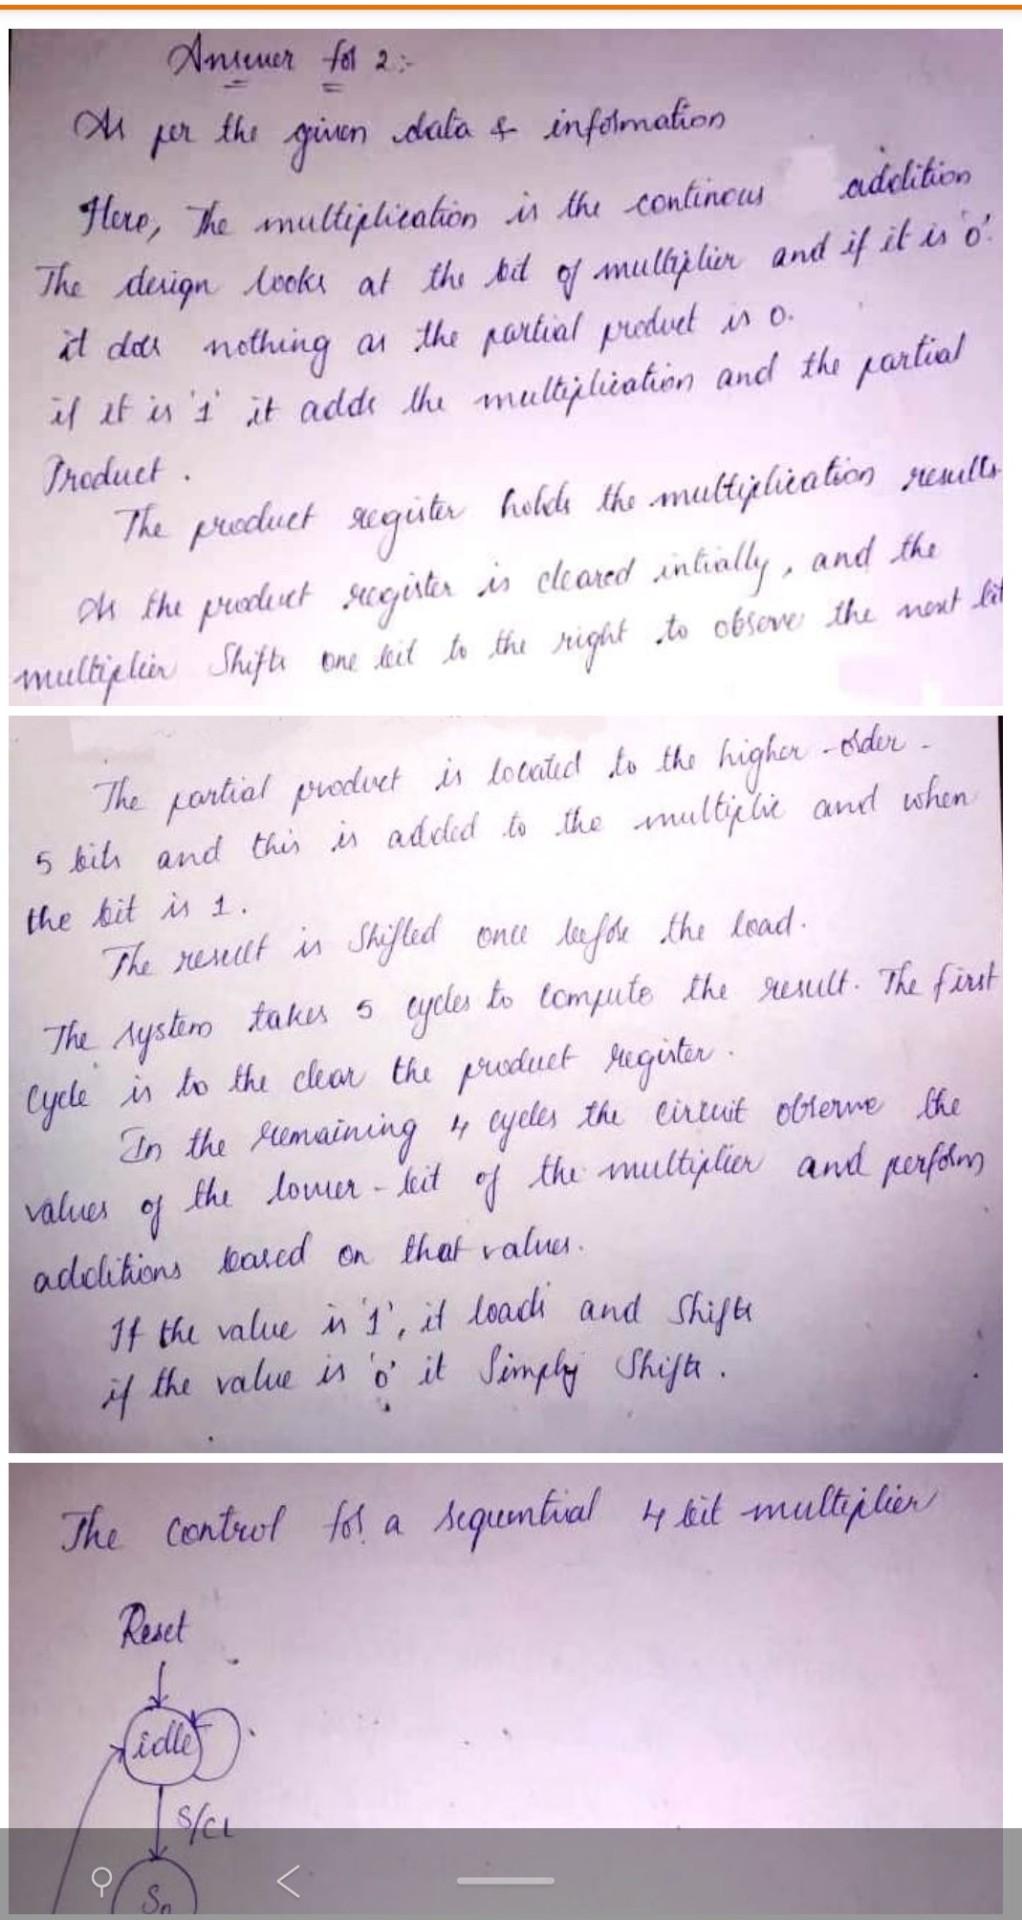 Answer for 2:-
As per the given data & information
Here, The multiplication is the continous addition
The design looks at the bit of multiplier and if it is '0'.
it does nothing as the partial product is 0.
if it is '1' it adds the multiplication and the partial
Product.
The product register holds the multiplication results
As the product register is cleared intially, and the
multiplier Shifts one bit to the right to observe the next bit
The partial product is located to the higher-order-
5 bits and this is added to the multiplie and when
the bit is 1.
The result is Shifted once before the load.
The system takes 5 cycles to compute the result. The first
Cycle is to the clear the product register.
In the remaining 4 cycles the circuit observe the
values of the lower-bit of the multiplier and perform
additions based on that values.
If the value is '1', it loads and Shifts
if the value is '0' it Simply Shifts.
The Control for a sequential 4 bit multiplier
Reset
idle
S/CL
S0